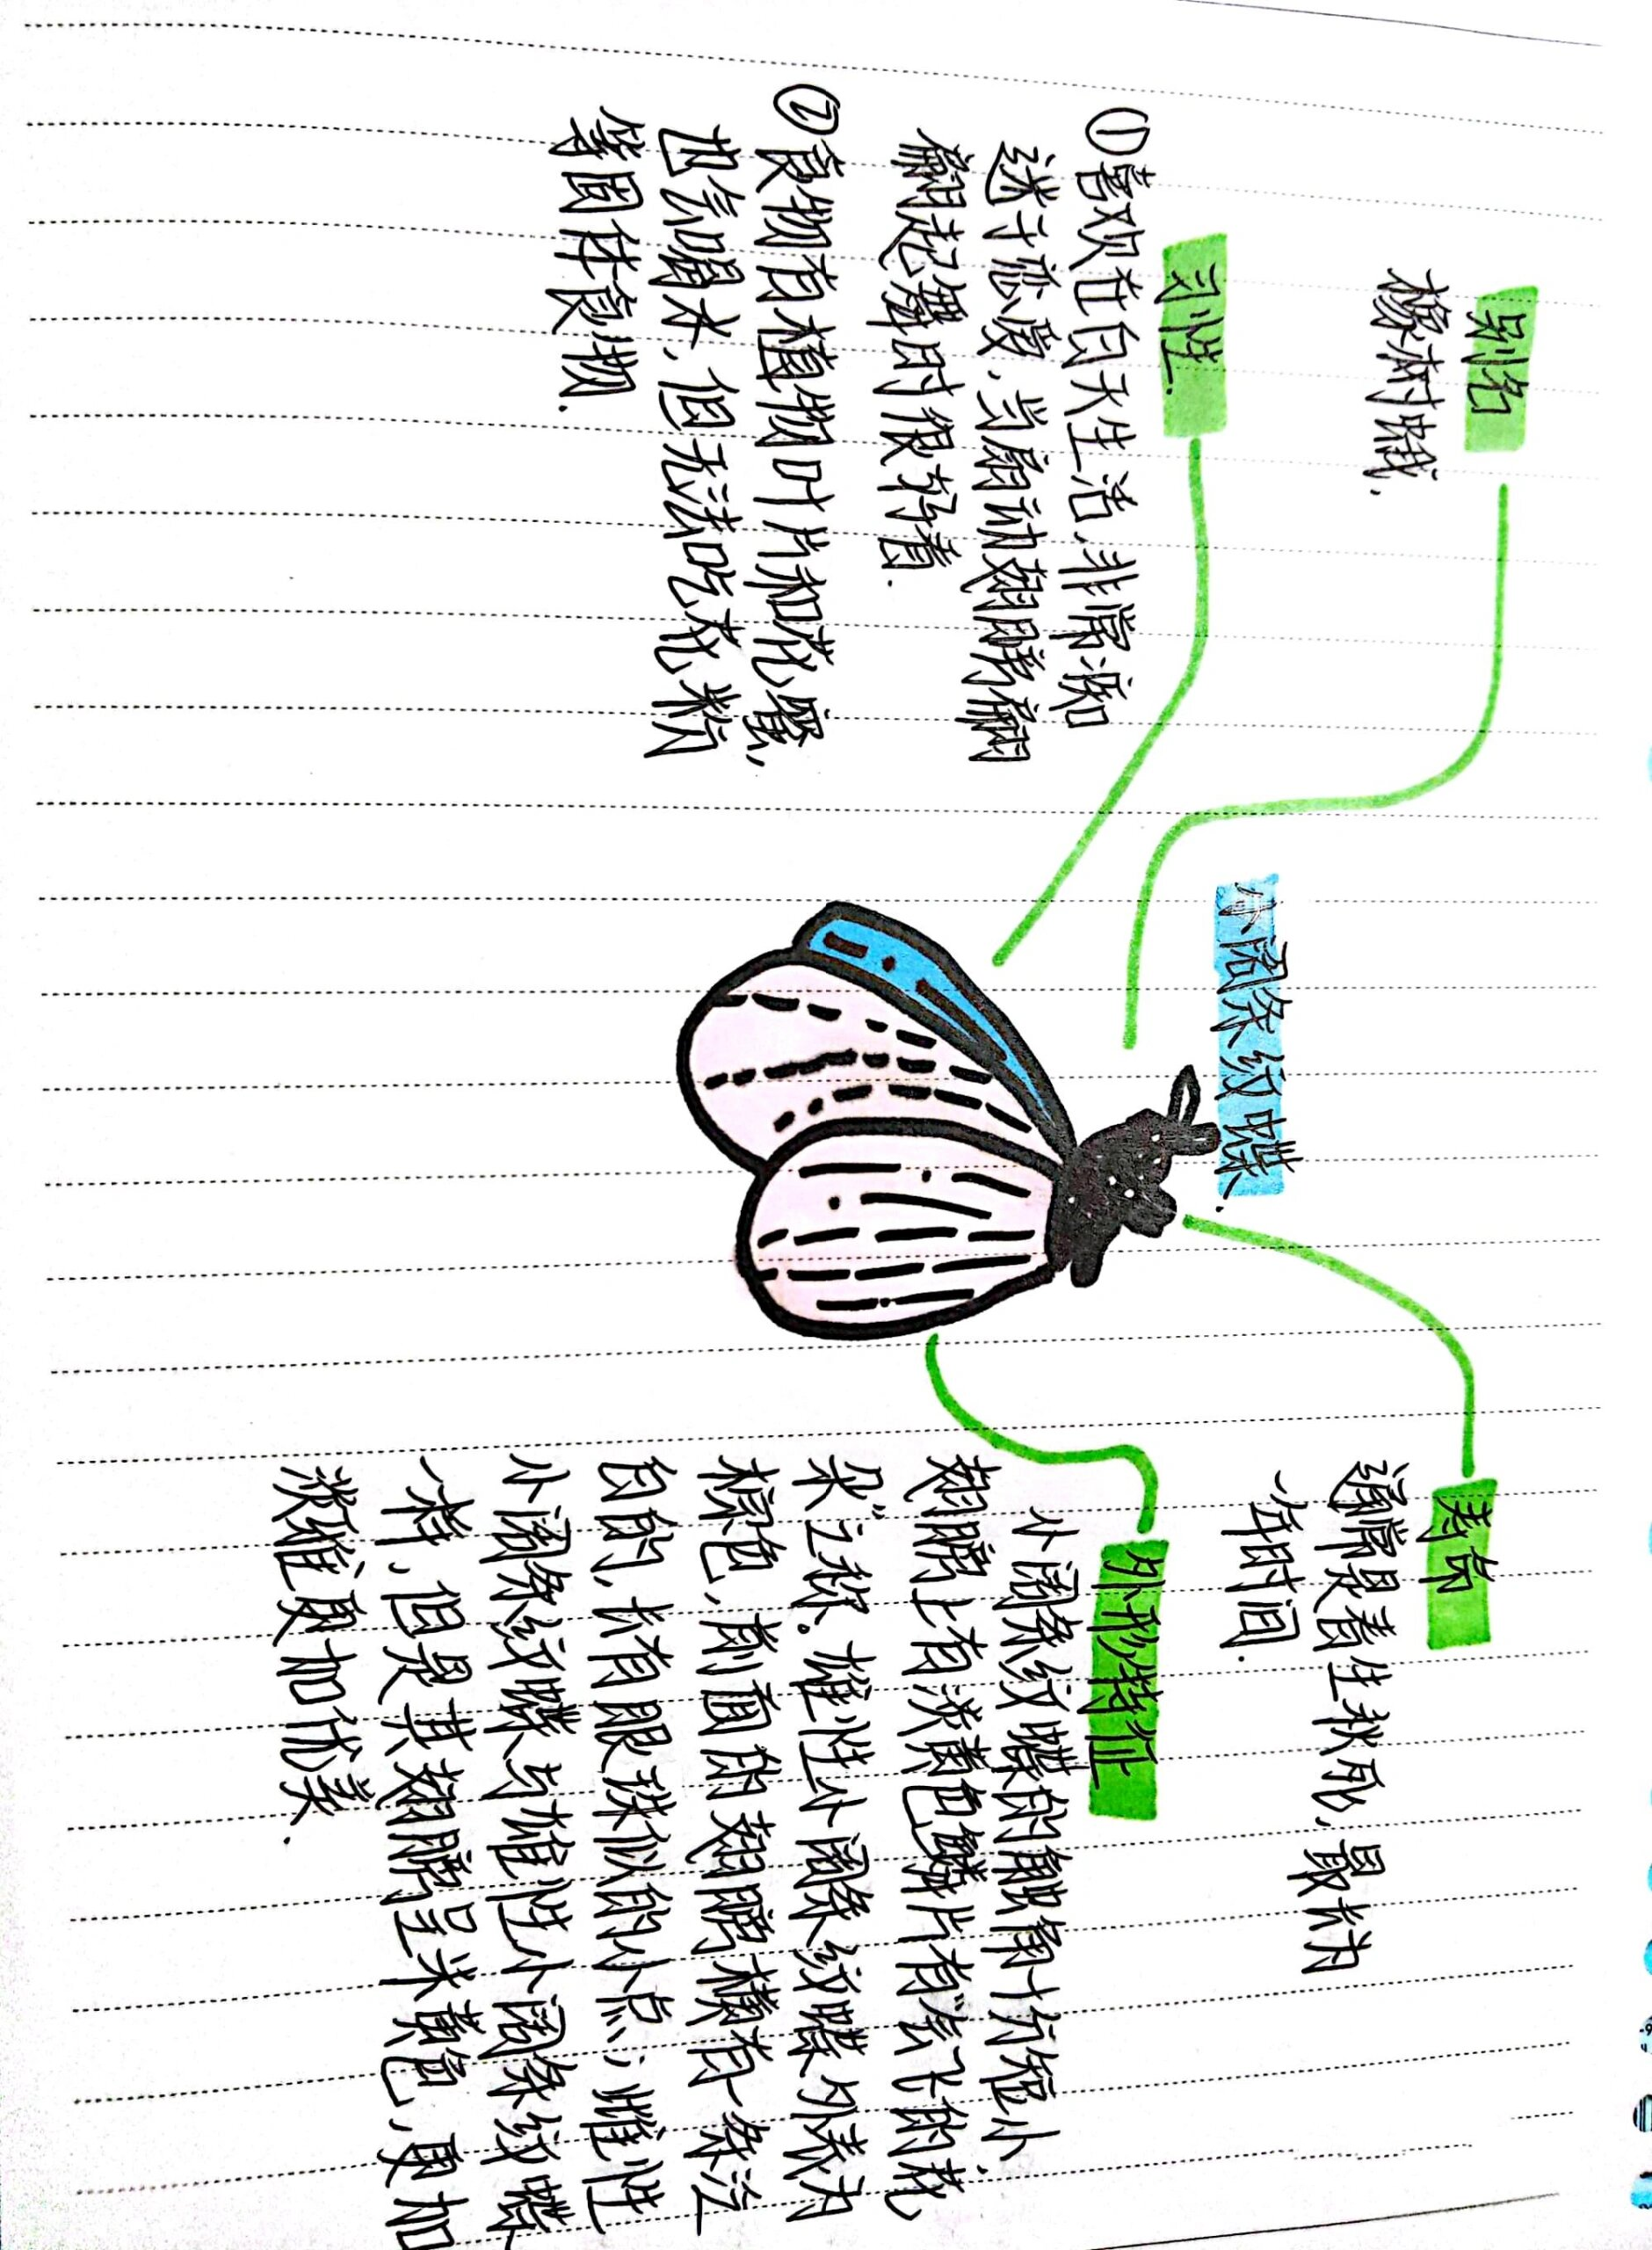 小阔条纹蝶.
别名
橡树蛾.
习性.
①喜欢在白天生活,非常深和
迷于恋爱,当扇动翅膀翩
翩起舞时很好看.
②食物有植物叶片和花蜜,
也会喝水,但无法吃花粉
等固体食物.
寿命
通常是春生秋死,最长为
一年时间.
外形特征
小阔条纹蝶的触角十分短小,
翅膀上有淡黄色鳞片有“会飞的花
朵”之称。雄性小阔条纹蝶外表为
棕色,前面的翅膀横有一条泛
白的,长有眼珠似的小点;雌性
小阔条纹蝶与雄性小阔条纹蝶
一样,但是其翅膀呈米黄色,更加
淡雅更加优美.